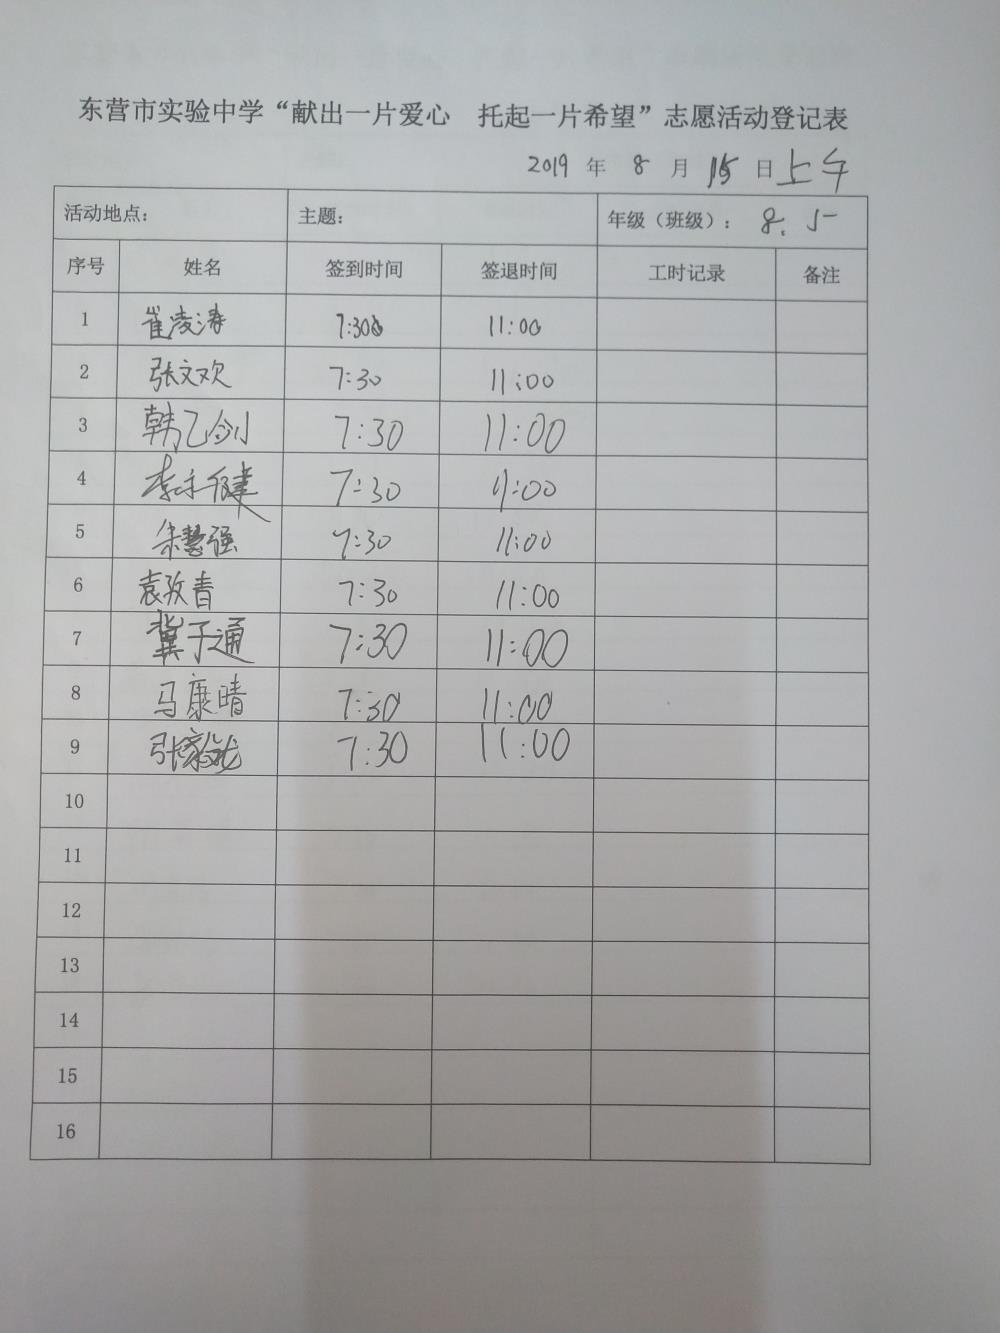 东营市实验中学“献出一片爱心 托起一片希望”志愿活动登记表
2019 年 8 月 15 日 上午
活动地点： 主题： 年级（班级）： 8.5
序号 姓名 签到时间 签退时间 工时记录 备注
1 崔凌涛 7:30 11:00
2 张文欢 7:30 11:00
3 韩乙剑 7:30 11:00
4 7:30 11:00
5 朱慧强 7:30 11:00
6 袁孜青 7:30 11:00
7 冀子通 7:30 11:00
8 马康晴 7:30 11:00
9 7:30 11:00
10
11
12
13
14
15
16